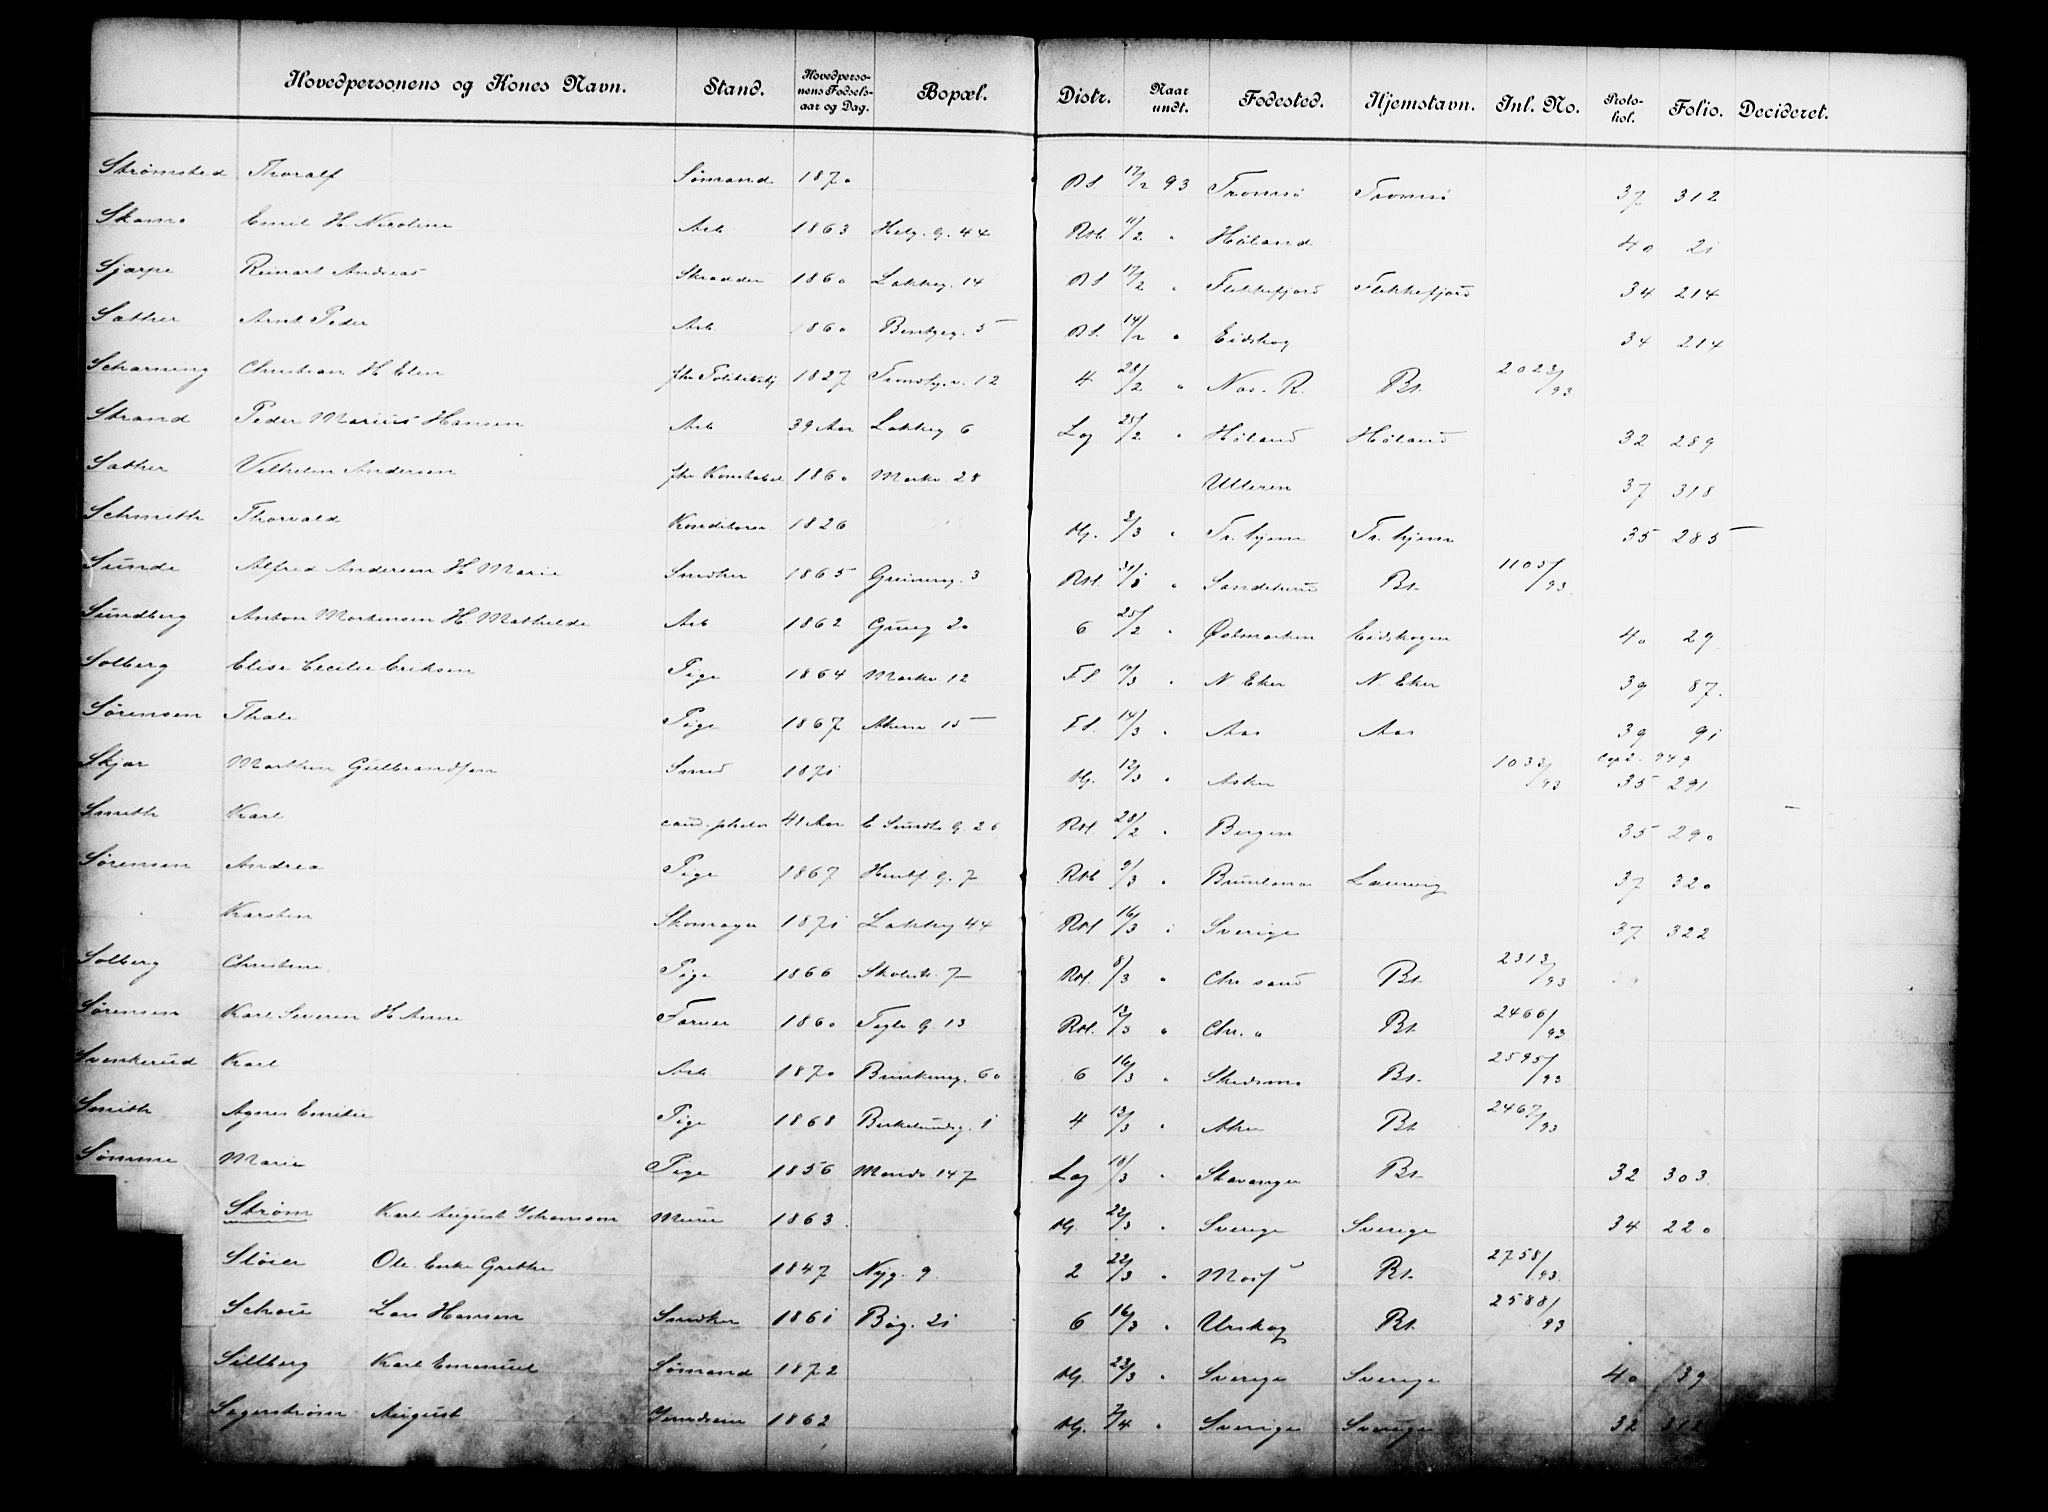 Hovedpersonens og Kones Navn. Stand. Hovedpersonens Fødselsaar og Dag. Bopæl. Distr. Naar undt. Fødested. Hjemstavn. Inl. No. Protokol. Folio. Decideret.
Strømsted Thoralf Sømand 1870 BS 17/2 93 Tromsø Tromsø 37 312
Skamo Emil H. Nicoline Arb 1863 Helg. g. 44 Rtt 11/2 " Høland 40 21
Sjarpe Reinart Andreas Skrædder 1860 Lakkeg. 14 BS 17/2 " Flekkefjord Flekkefjord 34 214
Sæther Arnt Peder Arb 1860 5 BS. 14/2 " Eidskog 34 214
Scharning Christian H. Elen fhv Politibetj 1827 12 4 28/2 " Næs. R. Bt. 2023/93
Strand Peder Marius Hansen Arb 39 Aar Lakkeg 6 Lag 25/2 " Høland Høland 32 289
Sæther Vilhelm Andersen fhv Konstabel 1860 Markv. 28 Ulleren 37 318
Schmith Thorvald Konditorsv. 1826 Hj. 2/3 " Tr. hjem Tr. hjem 35 285
Sunde Alfred Andersen H. Marie Snedker 1865 Grünerg. 3 Rtt. " Sandeherred Bt. 1105/93
Sundberg Anton Mortensen H. Mathilde Arb 1862 Grueg 20 6 25/2 " Østmarken Eidskogen 40 29
Solberg Elise Cecilie Eriksen Pige 1864 Markv 12 FS 10/3 " N. Eker N. Eker 39 87.
Sørensen Thale Pige 1867 Akersv 15 FS. 14/3 " Aas Aas 39 91
Skjær Marthin Gulbrandsen Smed 1871 Hj. 12/3 " Asker 1033/93 Cop 2. 949 35 291
Smith Karl cand. philos 41 Aar E Sundts g. 26 Rtt. 28/2 " Bergen 35 290
Sørensen Andrea Pige 1867 Huitf. g. 7 Rtt 9/3 " Brunlanæs Laurvig 37 320
" Karsten Skomager 1871 Lakkeg 44 Rtt 16/3 " Sverige 37 322
Solberg Christine Pige 1866 Skolest. 7 Rtt. 8/3 " Chr. sand Bt. 2313/93
Sørensen Karl Severin H. Anne Farver 1860 Teglv. g. 13 Rtt. 12/3 " Chr. a Bt. 2466/93
Svenkerud Karl Arb 1870 Brinkeng. 60 6 16/3 " Skedsmo Bt. 2595/93
Smith Agnes Emilie Pige 1868 Birkelundsg. 1 4 13/3 " Aker Bt. 2467/93
Sømme Marie Pige 1856 Maridv 147 Lag 18/3 " Stavanger Bt. 32 303.
Strøm Karl August Johansson Murer 1863. Hj. 22/3 " Sverige Sverige 34 220
Støier Ole. Enke Grethe 1847 Nyg. 9. 2 22/3 " Moss Bt. 2758/93.
Schou Lars Hansen Snedker 1861 Bøg. 21 6 16/3 " Urskog Bt. 2588/93
Sillberg Karl Emanuel Sømand 1872 Hj. 22/3 " Sverige Sverige 40 139
Sagerstrøm August 1862 Hj. 2/4 " Sverige Sverige 32 312